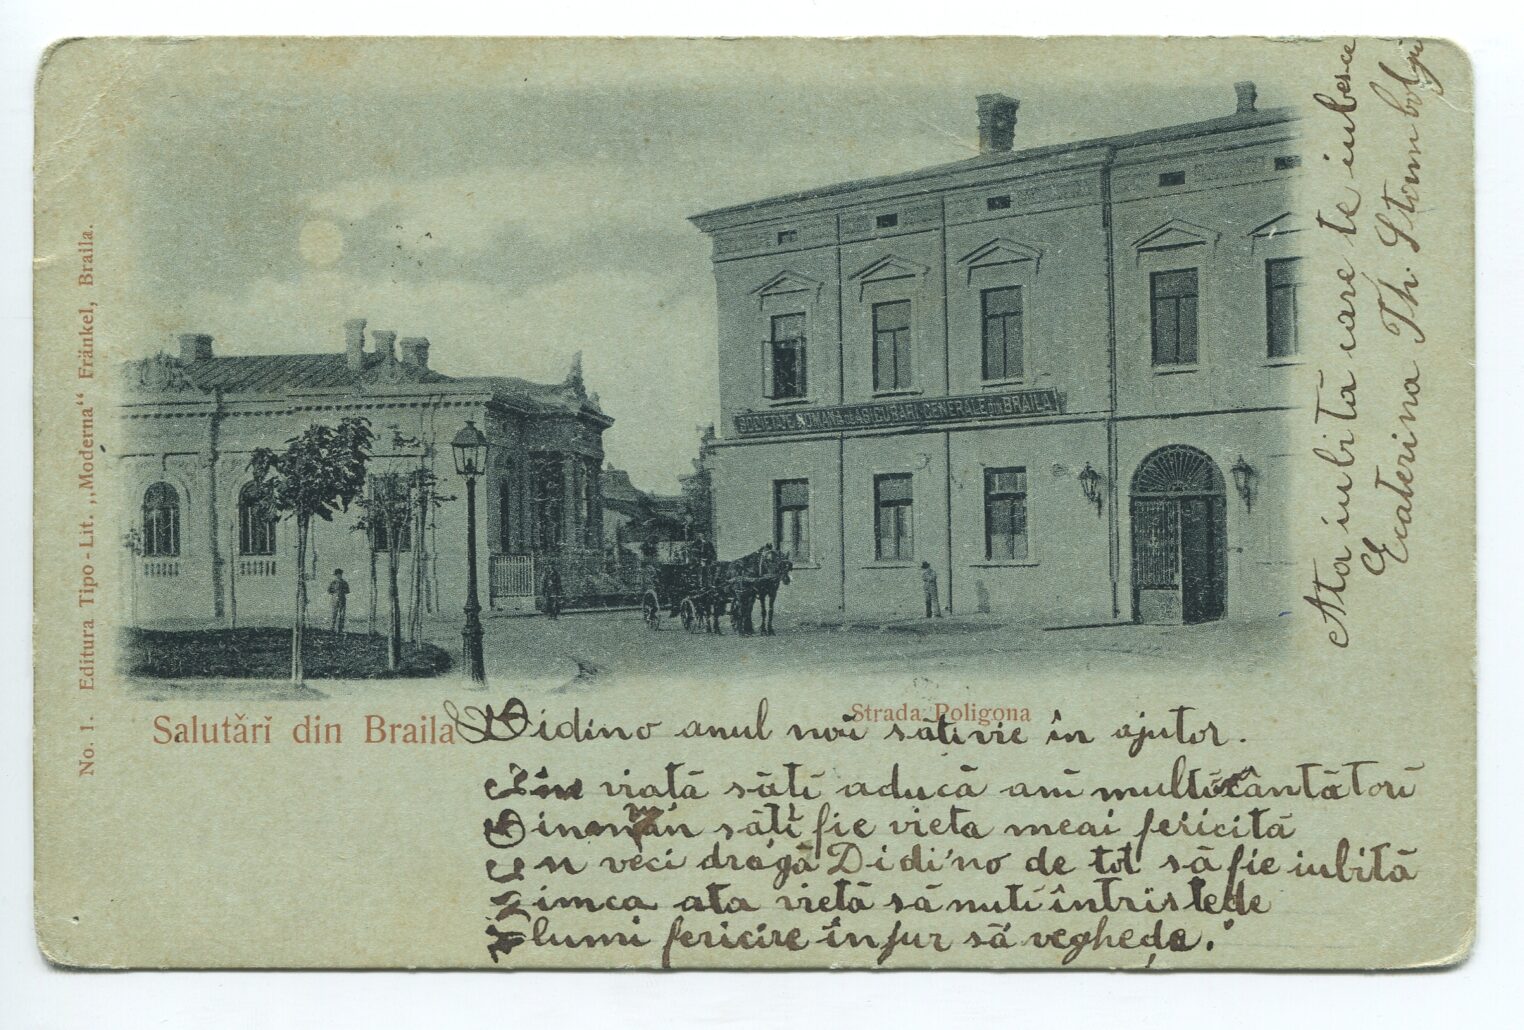 No. 1. Editura Tipo - Lit. „Moderna“ Fränkel, Braila.
SOCIETATEA ROMANA de ASIGURARI GENERALE din BRAILA
Salutărĭ din Braila
Strada Poligona
Didino anul noŭ sâti vie în ajutor.
În viată sâti aducă ani multi cântători
Din sâti fie vieta meai fericită
În veci dragă Didino de tot să fie iubită
Zimca ata vietă să nuti întristede
lumi fericire înjur să veghede.
Ata iubită care te iubesce
Ecaterina Th. Stambolgi